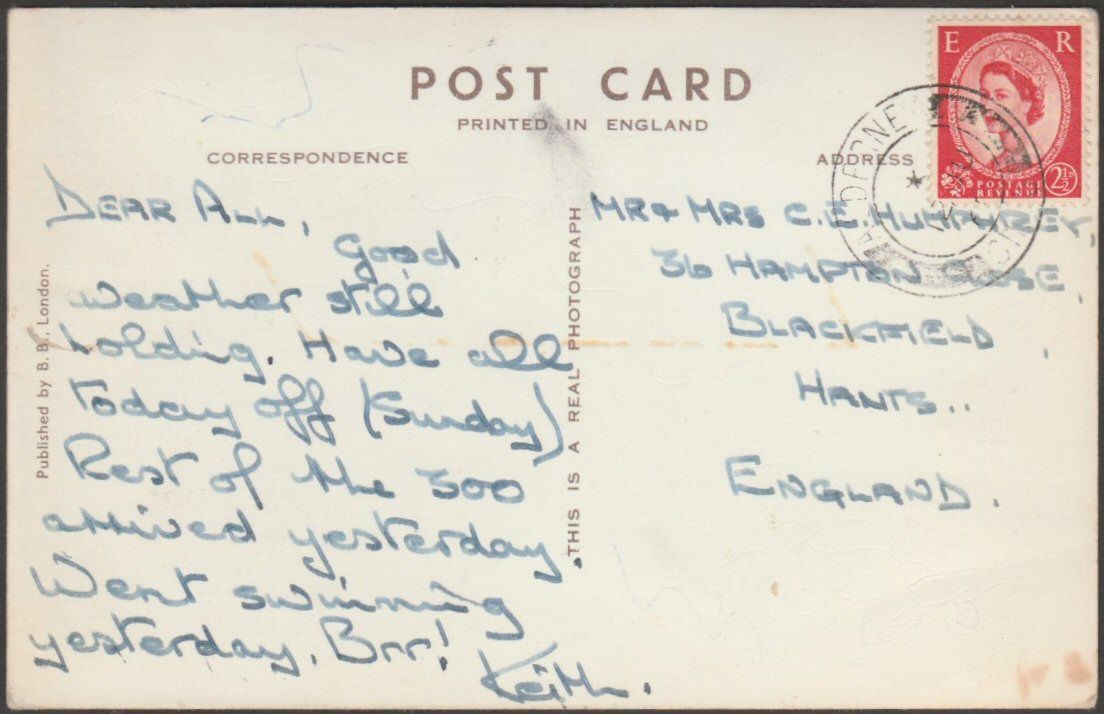 POST CARD
PRINTED IN ENGLAND
CORRESPONDENCE
ADDRESS
E R
POSTAGE
REVENUE
2½D
Published by B. B., London.
THIS IS A REAL PHOTOGRAPH
DEAR ALL,
Good
weather still
holding. Have all
today off (Sunday)
Rest of the 300
arrived yesterday.
Went swimming
yesterday, Brr!
Keith.
MR & MRS C. E. HUMPHREY,
36 HAMPTON CLOSE,
BLACKFIELD,
HANTS..
ENGLAND.